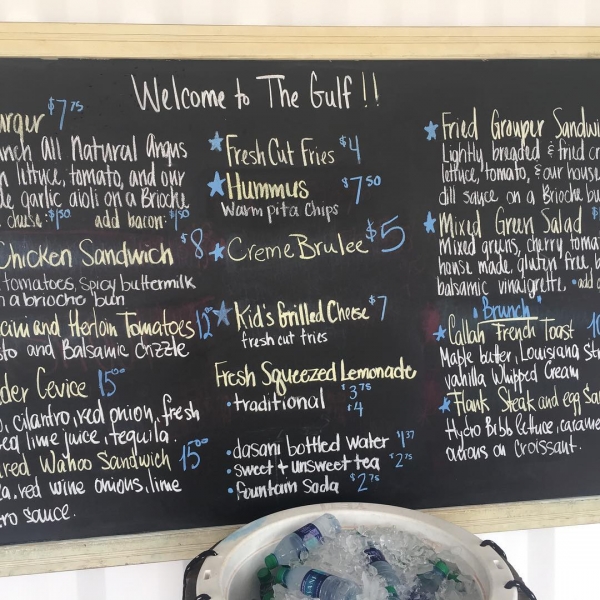 Welcome to The Gulf!!
$7 75
All Natural Angus
lettuce, tomato, and our
garlic aioli on a Brioche
add bacon: $1 50
Chicken Sandwich $8
tomatoes, spicy buttermilk
a brioche bun
and Herloin Tomatoes 12
and Balsamic drizzle
Cevice 15 00
cilantro, red onion, fresh
lime juice, tequila.
Wahoo Sandwich 15 00
red wine onions, lime
sauce.
Fresh Cut Fries $4
Hummus $7 50
warm pita chips
Creme Brulee $5
Kid's Grilled Cheese $7
fresh cut fries
Fresh Squeezed Lemonade
• traditional $3 75
$4
• dasani bottled water $1 37
• sweet & unsweet tea $2 75
• fountain soda $2 75
Fried Grouper
Lightly breaded & fried
lettuce, tomato, & our house
dill sauce on a Brioche
Mixed Green Salad
Mixed greens, cherry
house made, gluten free,
balsamic vinaigrette.
"Brunch"
Callah French Toast
Maple butter, Louisiana
Vanilla Whipped Cream
Flank Steak and egg
Hydro Bibb lettuce,
onions on Croissant.